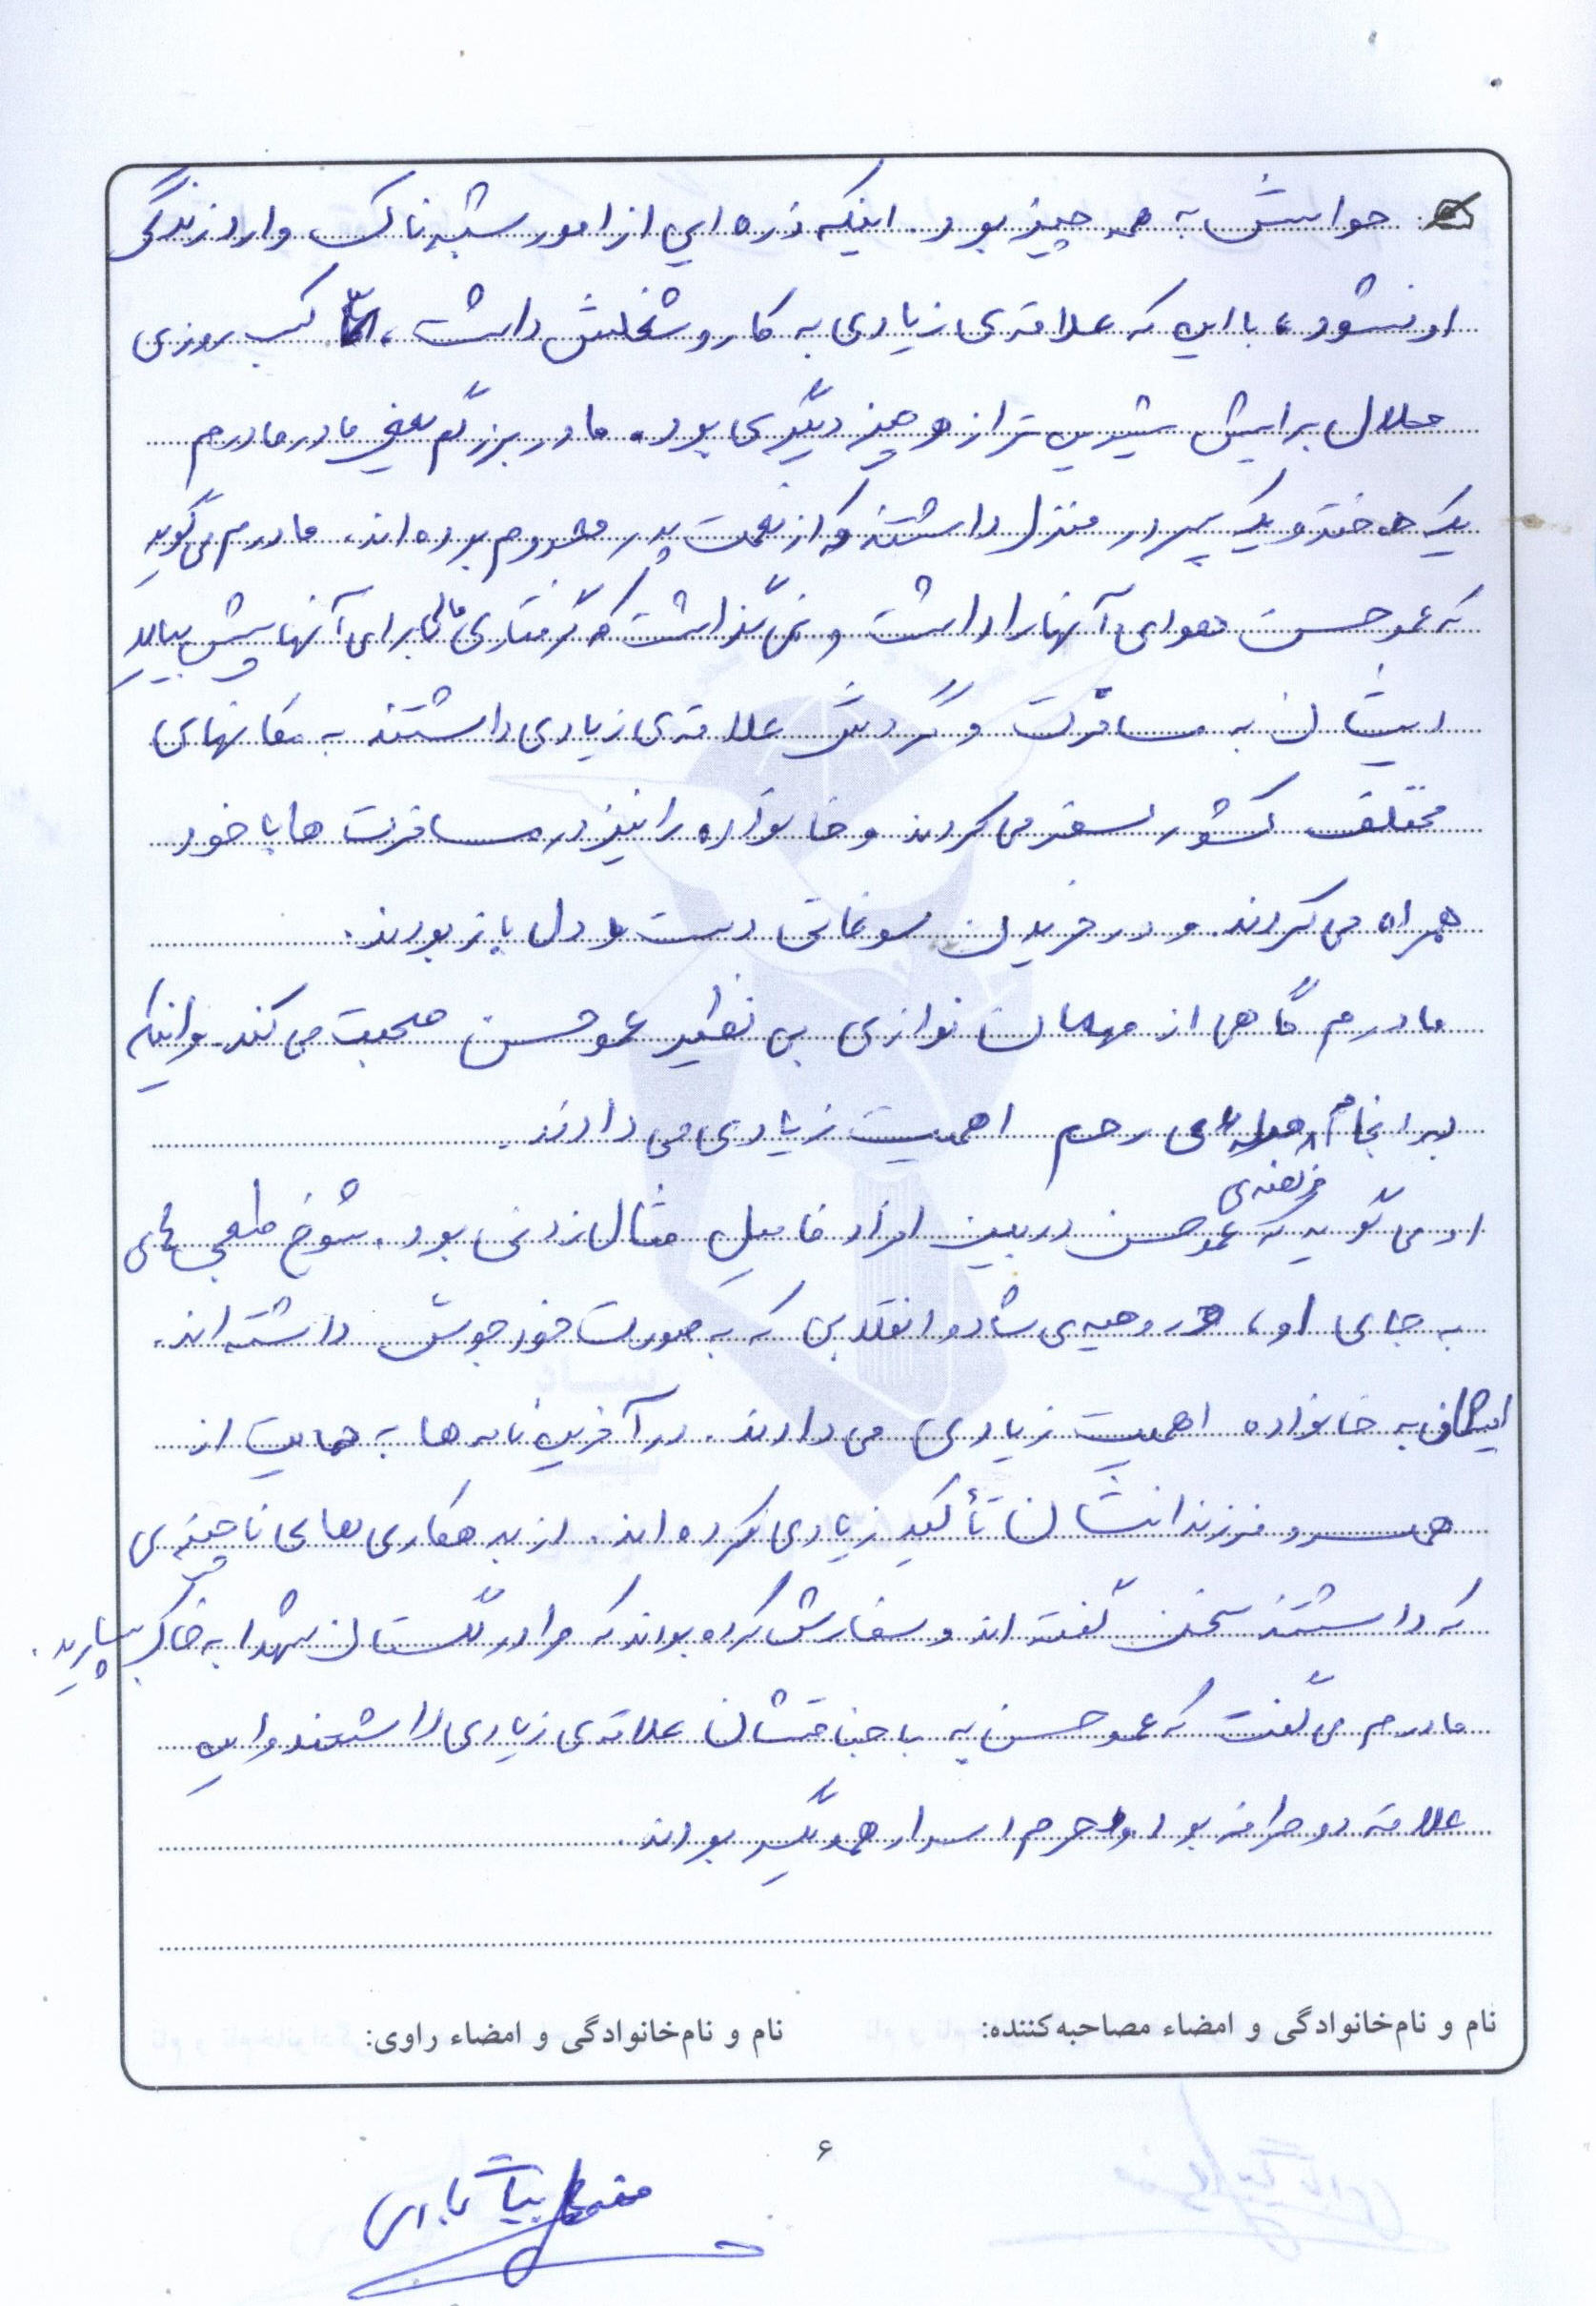 حواسش به همه چیز بود. اینکه ذره ای از امور شبهه ناک وارد زندگی
او نشود، با این که علاقه ی زیادی به کار و شغلش داشت، امّا کسب روزی
حلال برایش شیرین تر از هر چیز دیگری بود. مادر بزرگم یعنی مادر مادرم
یک دختر و یک پسر در منزل داشتند که از نعمت پدر محروم بوده اند. مادرم می گوید
که عمو حسن هوای آنها را داشت و نمی گذاشت که گرفتاری مالی برای آنها پیش بیاید
ایشان به مسافرت و گردش علاقه ی زیادی داشتند به مکانهای
مختلف کشور سفر می کردند و خانواده را نیز در مسافرت ها با خود
همراه می کردند و در خریدن سوغاتی دست و دل باز بودند.
مادرم گاهی از مهمان نوازی بی نظیر عمو حسن صحبت می کند و اینکه
بر انجام فریضه ی صله ی رحم اهمیت زیادی می دادند.
او می گوید که عمو حسن در بین افراد فامیل مثال زدنی بود. شوخ طبعی های
به جای او، روحیه ی شاد و انقلابی که به صورت خودجوش داشته اند.
ایشان به خانواده اهمیت زیادی می دادند. در آخرین نامه ها به حمایت از
همسر و فرزندانشان تأکید زیادی کرده اند. از بدهکاری های ناچیزی
که داشتند سخن گفته اند و سفارش کرده بودند که مرا در گلستان شهدا به خاک بسپارید.
مادرم می گفت که عمو حسن به باجناقشان علاقه ی زیادی داشتند و این
علاقه دو طرفه بود و محرم اسرار همدیگر بودند.
نام و نام‌خانوادگی و امضاء مصاحبه‌کننده:
نام و نام‌خانوادگی و امضاء راوی:
۶